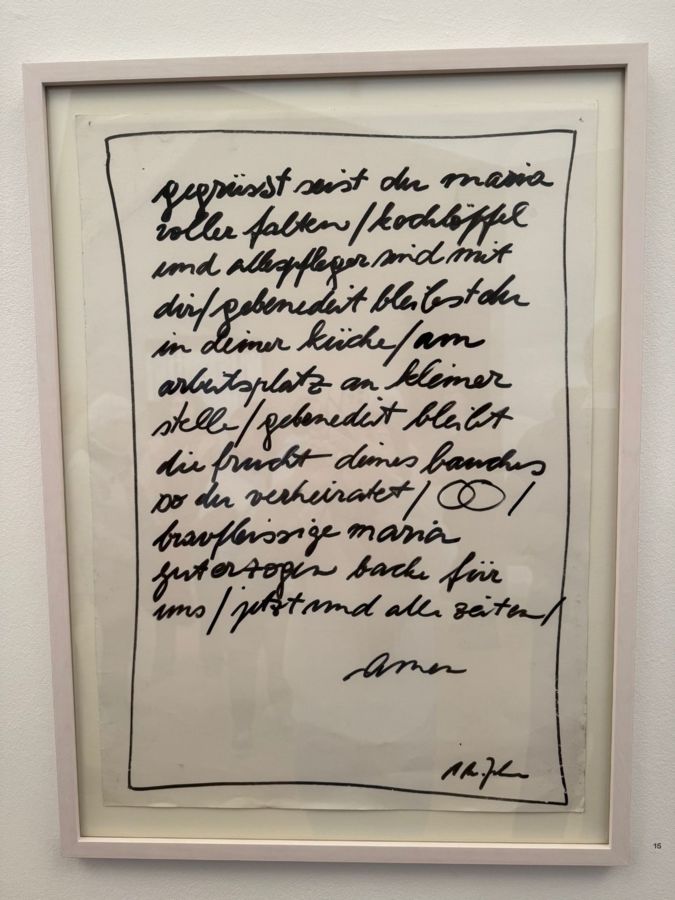 gegrüsst seist du maria
voller falten / kochlöffel
und allespfleger sind mit
dir / gebenedeit bleibest du
in deiner küche / am
arbeitsplatz an kleiner
stelle / gebenedeit bleibt
die frucht deines bauches
so du verheiratet / /
bravfleissige maria
guterzogen backe für
uns / jetzt und alle zeiten /
amen
15